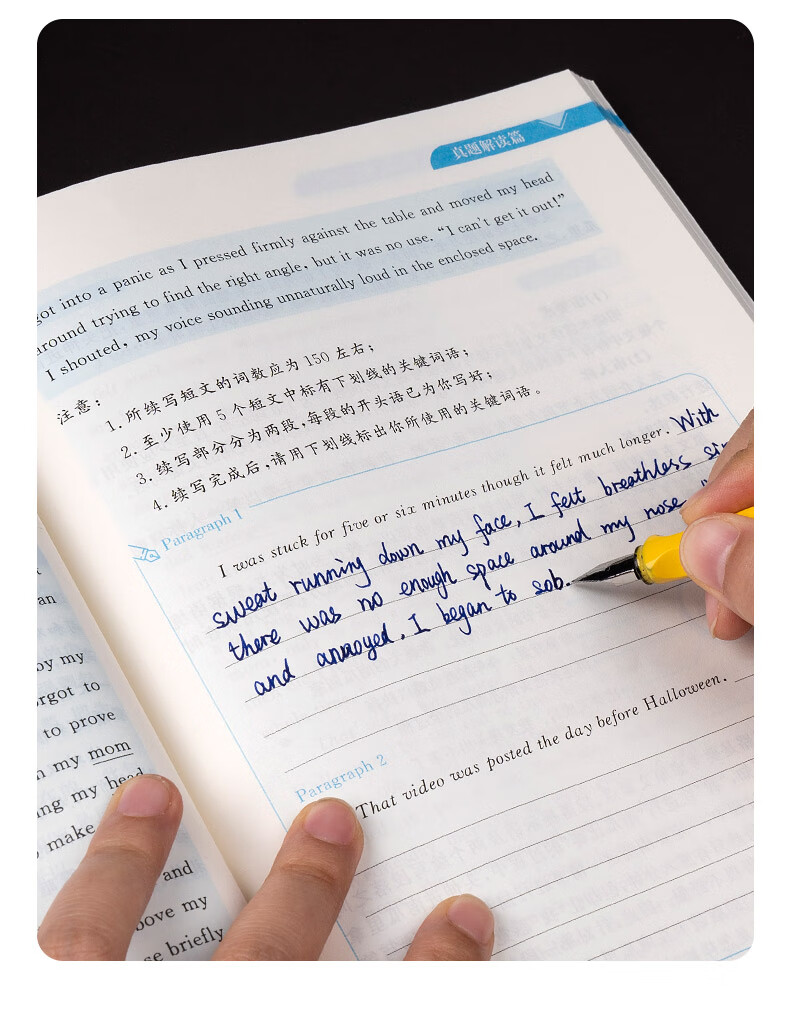 真题解读篇
got into a panic as I pressed firmly against the table and moved my head
around trying to find the right angle, but it was no use. “I can't get it out!”
I shouted, my voice sounding unnaturally loud in the enclosed space.
注意：
1. 所续写短文的词数应为 150 左右；
2. 至少使用 5 个短文中标有下划线的关键词语；
3. 续写部分分为两段，每段的开头语已为你写好；
4. 续写完成后，请用下划线标出你所使用的关键词语。
Paragraph 1
I was stuck for five or six minutes though it felt much longer. With
sweat running down my face, I felt breathless
there was no enough space around my nose.
and annoyed, I began to sob.
Paragraph 2
That video was posted the day before Halloween.
an
by my
to
to prove
my mom
my head
make
and
my
briefly